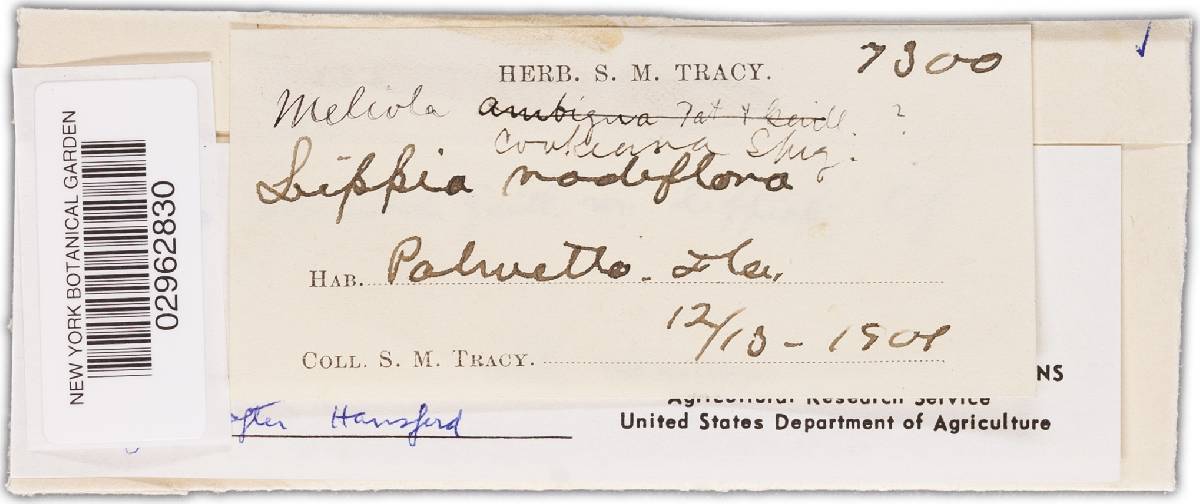 HERB. S. M. TRACY. 7300
Meliola ambigua Pat & Gaill. ?
cookeana Speg.
Lippia nodiflora
HAB. Palmetto. Fla.
12/13 - 1901
COLL. S. M. TRACY.
NEW YORK BOTANICAL GARDEN
02962830
NS
Agricultural Research Service
after Hansford
United States Department of Agriculture